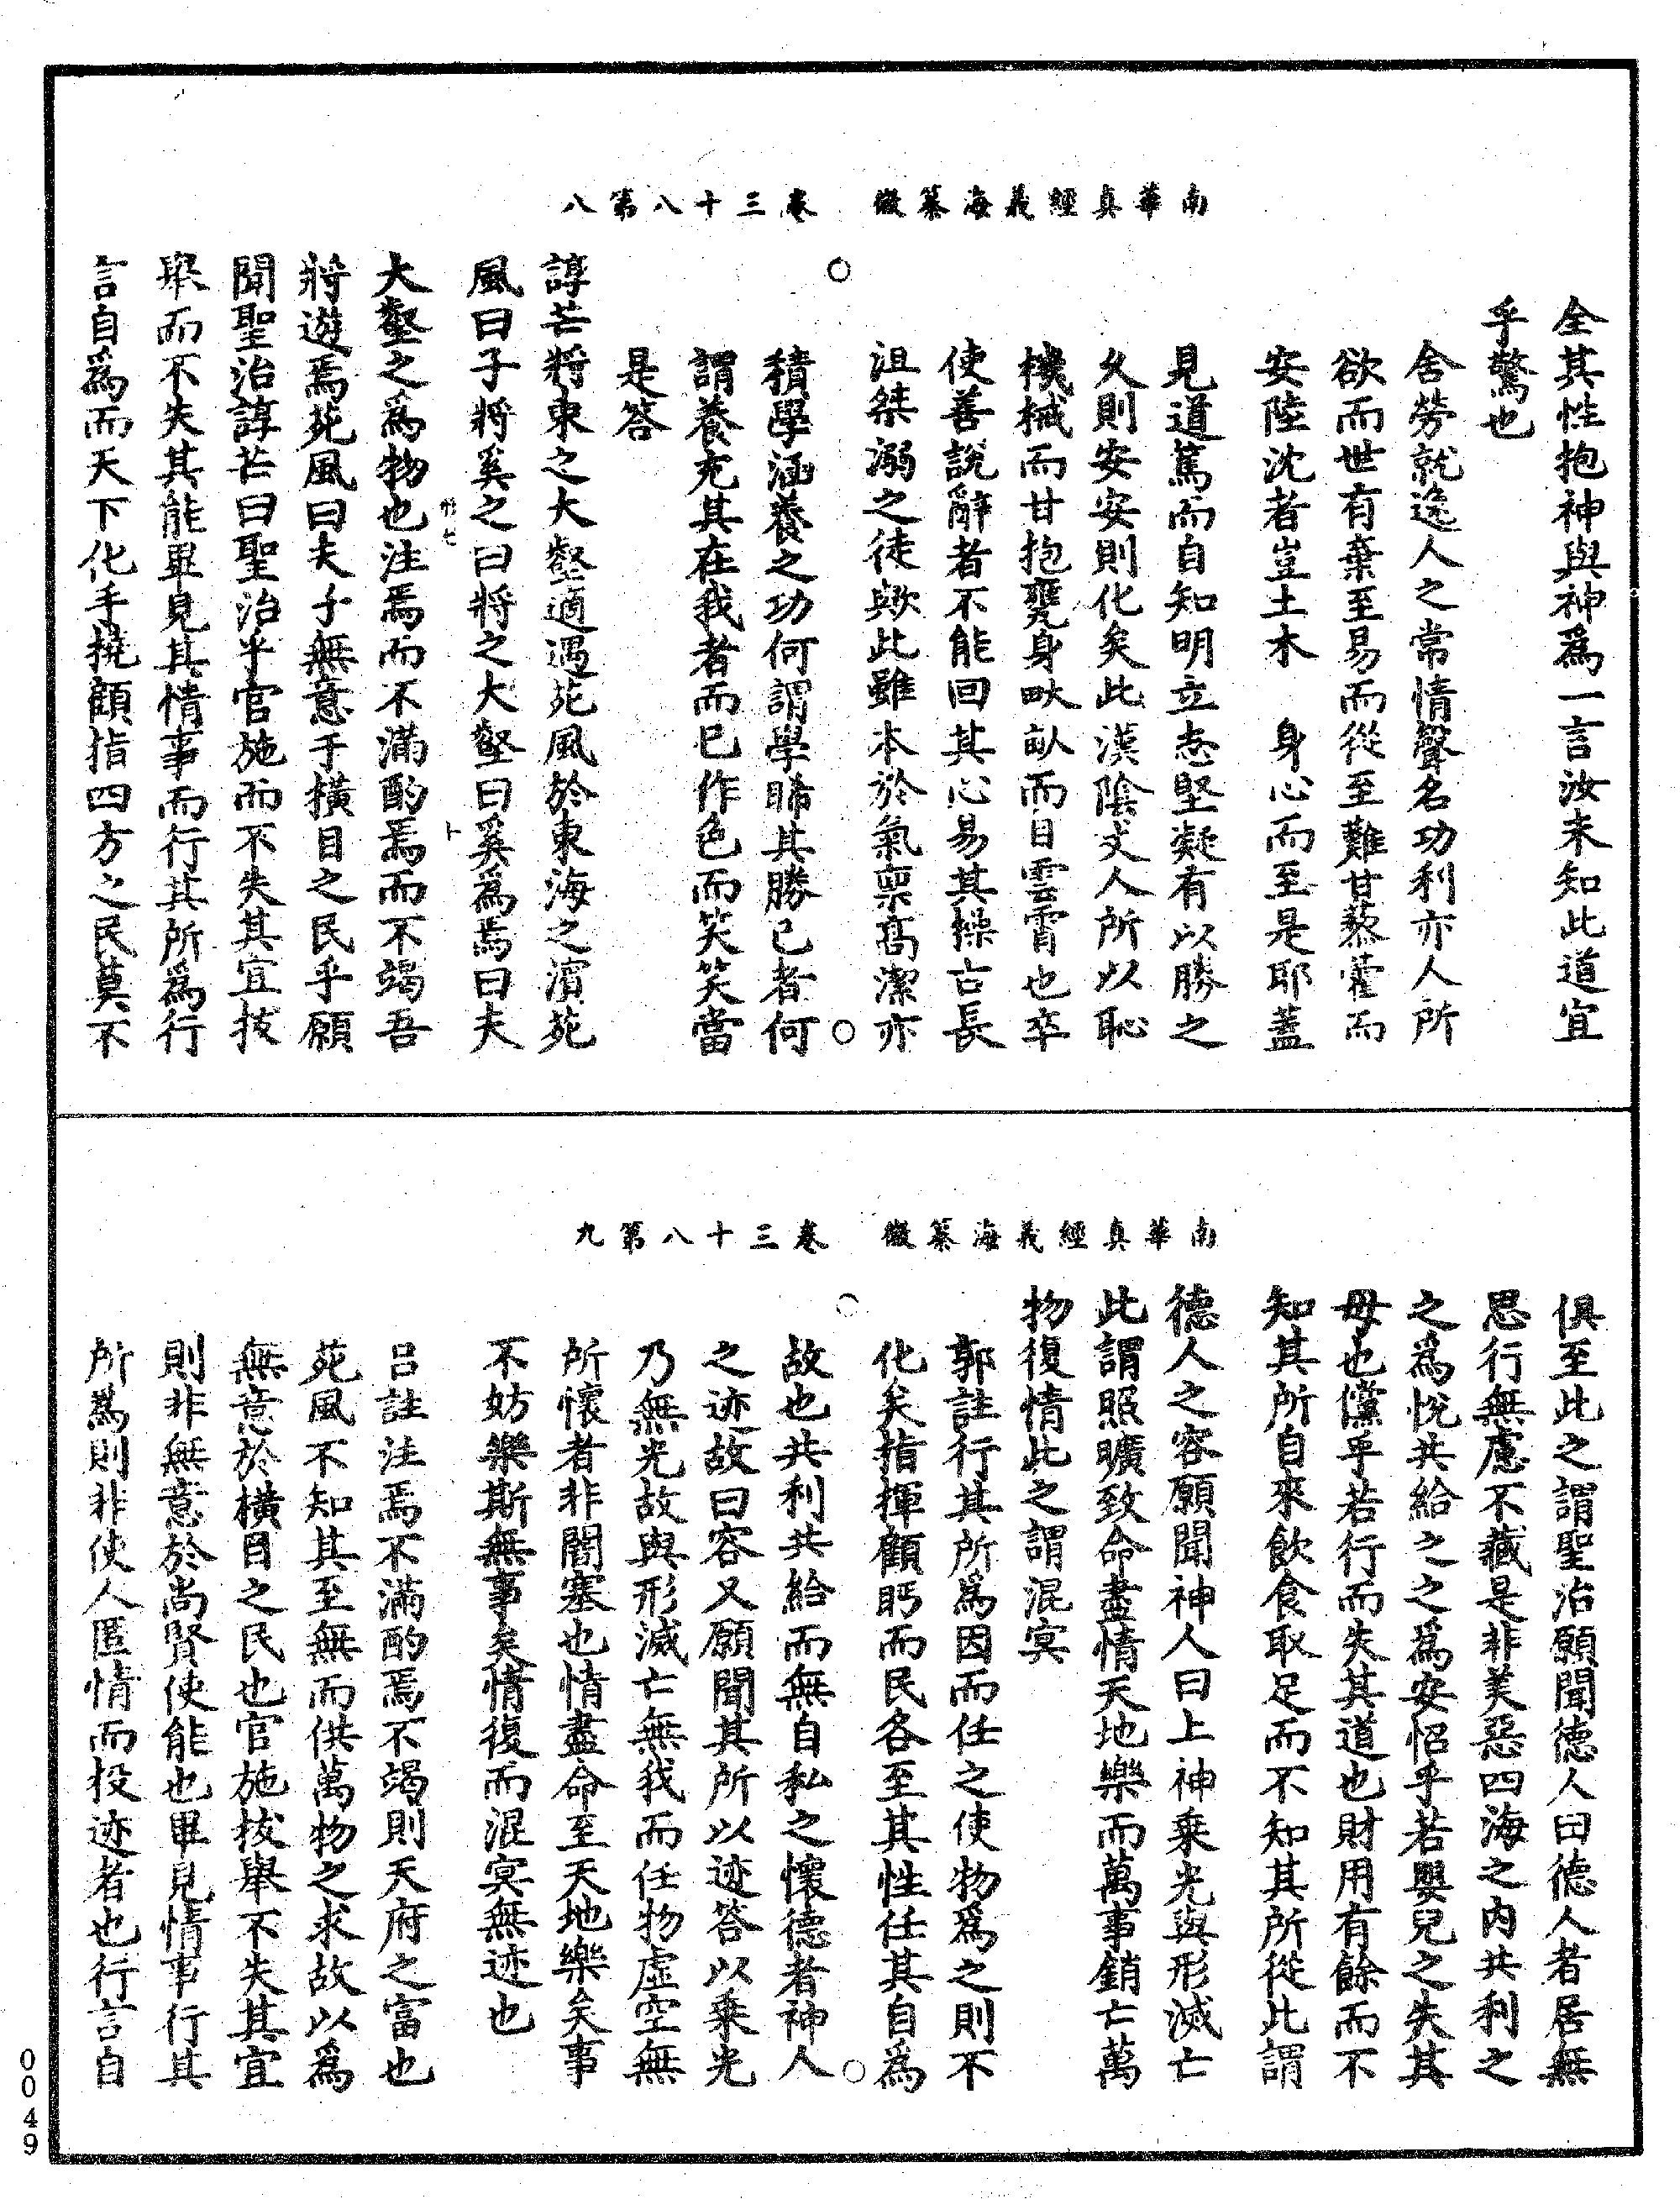 南華真經義海纂微　卷三十八第八
全其性抱神與神爲一言汝未知此道宜
乎驚也
舍勞就逸人之常情聲名功利亦人所
欲而世有棄至易而從至難甘藜藿而
安陸沈者豈土木　身心而至是耶蓋
見道篤而自知明立志堅凝有以勝之
久則安安則化矣此漢陰丈人所以恥
機械而甘抱甕身畎畝而目雲霄也卒
使善說辭者不能回其心易其操古長
沮桀溺之徒歟此雖本於氣稟高潔亦
積學涵養之功何謂學睎其勝己者何
謂養充其在我者而已作色而笑笑當
是答
諄芒將東之大壑適遇苑風於東海之濱苑
風曰子將奚之曰將之大壑曰奚爲焉曰夫
大壑之爲物也注焉而不滿酌焉而不竭吾
將遊焉苑風曰夫子無意于橫目之民乎願
聞聖治諄芒曰聖治乎官施而不失其宜拔
舉而不失其能畢見其情事而行其所爲行
言自爲而天下化手撓顧指四方之民莫不
南華真經義海纂微　卷三十八第九
俱至此之謂聖治願聞德人曰德人者居無
思行無慮不藏是非美惡四海之內共利之
之爲悅共給之之爲安怊乎若嬰兒之失其
母也儻乎若行而失其道也財用有餘而不
知其所自來飲食取足而不知其所從此謂
德人之容願聞神人曰上神乘光與形滅亡
此謂照曠致命盡情天地樂而萬事銷亡萬
物復情此之謂混冥
郭註行其所爲因而任之使物爲之則不
化矣指揮顧眄而民各至其性任其自爲
故也共利共給而無自私之懷德者神人
之迹故曰容又願聞其所以迹答以乘光
乃無光故與形滅亡無我而任物虛空無
所懷者非闇塞也情盡命至天地樂矣事
不妨樂斯無事矣情復而混冥無迹也
呂註注焉不滿酌焉不竭則天府之富也
苑風不知其至無而供萬物之求故以爲
無意於橫目之民也官施拔舉不失其宜
則非無意於尚賢使能也畢見情事行其
所爲則非使人匿情而投迹者也行言自
0049